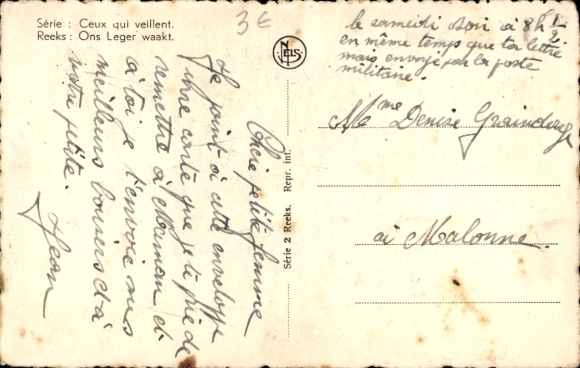 Série : Ceux qui veillent.
Reeks : Ons Leger waakt.
3€
NELS
Série 2 Reeks. Repr. int.
le samedi soir à 8h 1/2
en même temps que ta lettre
mais envoyé par la poste
militaire.
Mme Denise Graindorge
à Malonne.
Chère petite femme
Je joint à cette enveloppe
une carte que je te prie de
remettre à Maman et
à toi je t'envoie mes
meilleurs baisers et à
notre petite.
Jean